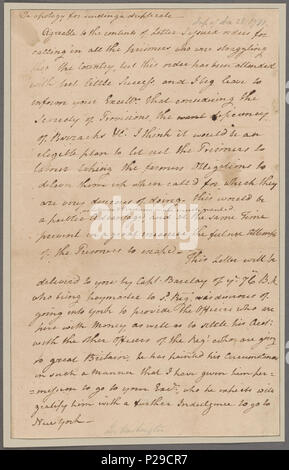 An apology for sending a duplicate
Agreable to the contents of Letter I issued orders for
calling in all the Prisoners who are straggling
the Country, but this order has been attended
with but little Success and I beg leave to
inform your Excelly. That considering the
Scarcity of Provisions, the want
of Barracks &c. I think it would be an
eligible plan to let out the Prisoners to
Labour taking the farmers Obligations to
deliver them up when call'd for which they
are very desirous of doing. this would be
a public and at the same Time
prevent in great measure the future attempts
of the Prisoners to escape.—
This Letter will be
delivered to you by Capt. Barclay of ye. 7th B.
who being paymaster to ye. Reg. was desirous of
going into York to provide the Officers who are
here with Money as well as to settle his Acct.
with the other Officers of the Reg. who are going
to great Britain; he has painted his Circumstances
in such a Manner that I have given him per=
=mission to go to your Excy. who he expects will
gratify him with a further Indulgence to go to
New York —
Washington
alamy
Image ID: P29CR7
www.alamy.com